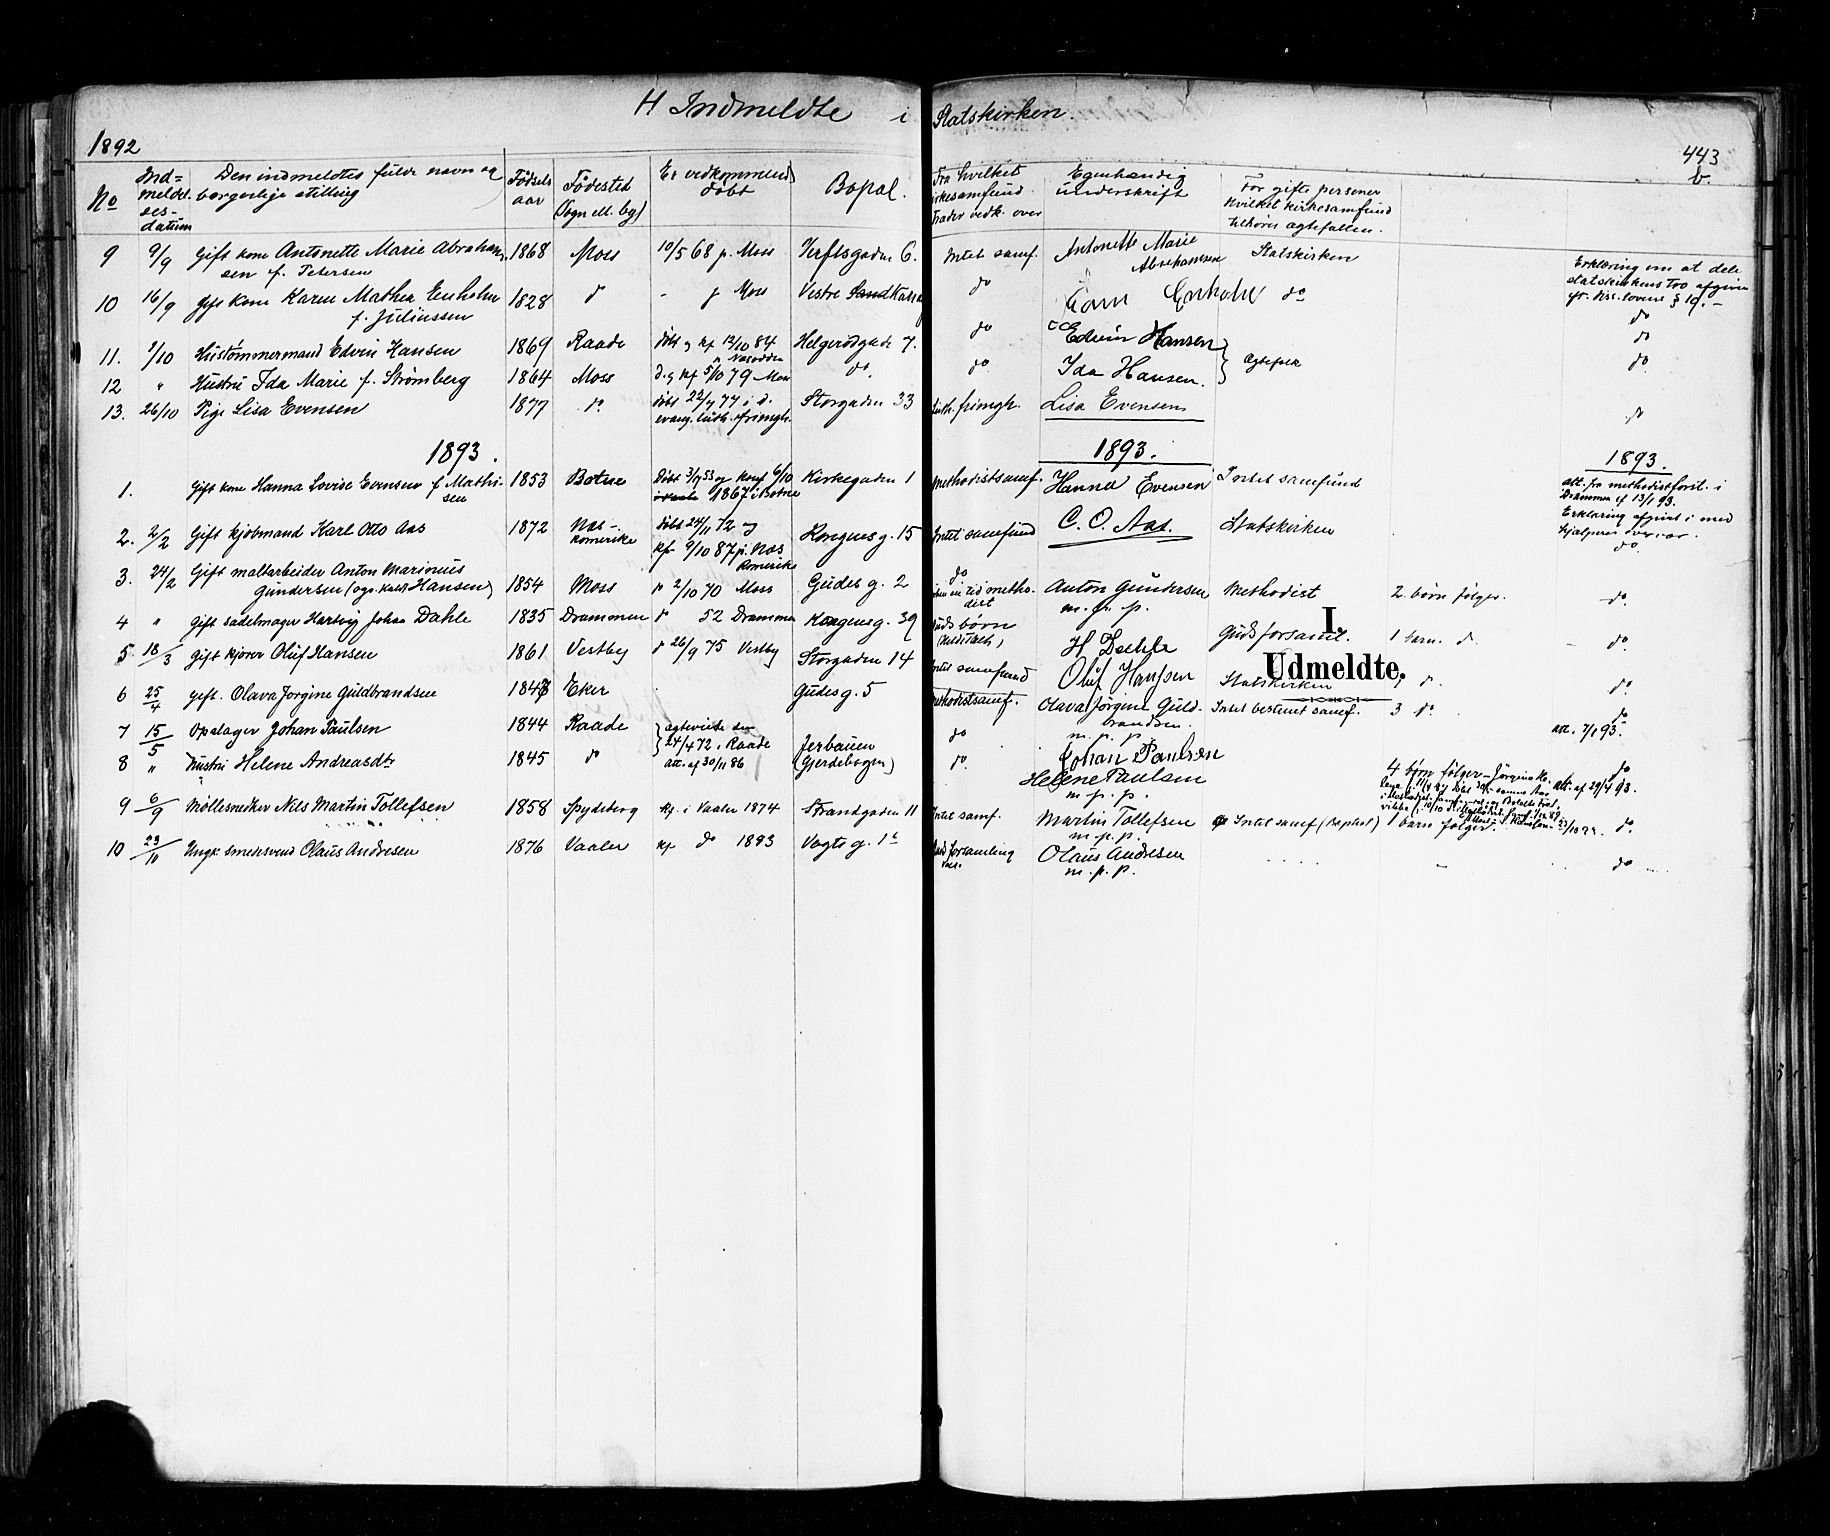 H Indmeldte i Statskirken.
1892
443
b.
No
Ind=
meldel.
ses-
datum
Den indmeldtes fulde navn og
borgerlige stilling
Fødsels
aar
Fødested
(sogn ell. by)
Er vedkommende
døbt
Bopæl.
Fra hvilket
kirkesamfund
træder vedk. over
Egenhændig
underskrift
For gifte personer
hvilket kirkesamfund
tilhører ægtefællen.
9 9/9 Gift kone Antonette Marie Abraham
sen f. Petersen
1868 Moss 10/5 68 p. Moss Verftsgaden 6. Intet samf. Antonette Marie
Abrahamsen
Statskirken
Erklæring om at dele
statskirkens tro afgiven
eft. Diss. lovens § 19. –
10 16/9 Gift kone Karen Mathea Enholm
f. Juliussen
1828 do - p Moss Vestre Kana do Enholm do
do
11. 1/10 Hustømmermand Edvin Hansen 1869 Raade døbt og kf 12/10 84
p Næsodden
Helgerødgade 7. do Edvin Hansen
Ægtepar
do
12 " Hustru Ida Marie f. Strømberg 1864 Moss d. og kf 5/10 79 Moss do. do Ida Hansen. do
13. 26/10 Pige Lisa Evensen 1877 do døbt 22/7 77 i d.
evang. luth. frimgh.
Storgaden 33 luth. frimgh. Lisa Evensen do
1893. 1893. 1893.
1. Gift kone Hanna Lovise Evensen f. Mathi-
sen
1853 Botne Døbt 3/4 53 og konf 6/10
1867 i Botne
Kirkegaden 1 Methodistsamf. Hanna Evensen Intet samfund
att. fra methodistforst. i
Drammen af 13/1 93.
2. 2/2 Gift kjøbmand Karl Otto Aas 1872 Næs –
Romerike
døbt 24/11 72 og
kf 9/10 87 p. Næs
Romerike
Kongensg. 15 Intet samfund C. O. Aas. Statskirken
Erklæring afgivet i med
hjælperes overvær.
do
3. 24/2 Gift maltarbeider Anton Marinius
Gundersen (ogs. kaldt Hansen)
1854 Moss p 2/10 70 Moss Gudes g. 2 do
Anton Gundersen
m. p. p.
Methodist 2 børn følger. do.
4 " Gift sadelmager Hartvig Johan Dahle 1835 Drammen do 52 Drammen Kongensg. 39 Guds børn
H Dæhle Guds forsaml. 1 barn. d. do.
5 18/3 Gift kjører Oluf Hansen 1861 Vestby do 26/9 75 Vestby Storgaden 14 Intet samfund Oluf Hansen Statskirken 1 d. do.
I.
Udmeldte.
6 25/4 Gift. Olava Jørgine Guldbrandsen 1848 Eker Gudes g. 5 Methodistsamf. Olava Jørgine Guld-
brandsen.
m. p. p.
Intet bestemt samf. 3 do. do
att. 7/1 93.
7 15/5 Oplager Johan Paulsen 1844 Raade ægteviede den
24/4 72 i Raade
att. af 30/11 86
Jerbauen
(Gjerdebogen)
do Johan Paulsen
8 " Hustru Helene Andreasdt. 1845 do do. Helene Paulsen
m. p. p.
4 børn følger – Jørgine
att. af 29/4 93. do
9 6/9 Møllesnedker Nils Martin Tollefsen 1858 Spydeberg kf. i Vaaler 1874 Strandgaden 11 Intet samf. Martin Tollefsen
m. p. p.
Intet samf (Baptist) 1 barn følger. do.
10 23/11 Ungk. smedsvend Olaus Andresen 1876 Vaaler kf do 1893 Vogts g. 1c forsamling
Olaus Andresen
m. p. p.
- do